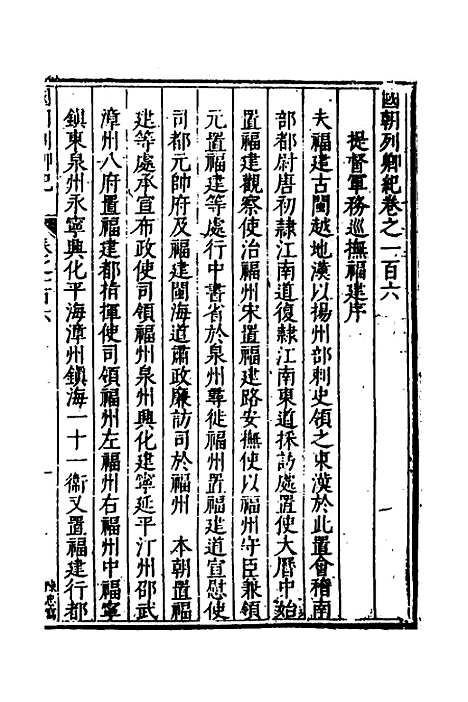 國朝列卿紀卷之一百六
提督軍務巡撫福建序
夫福建古閩越地漢以揚州部刺史領之東漢於此置會稽南
部都尉唐初隸江南道復隸江南東道採訪處置使大曆中始
置福建觀察使治福州宋置福建路安撫使以福州守臣兼領
元置福建等處行中書省於泉州尋徙福州置福建道宣慰使
司都元帥府及福建閩海道肅政廉訪司於福州 本朝置福
建等處承宣布政使司領福州泉州興化建寧延平汀州邵武
漳州八府置福建都指揮使司領福州左福州右福州中福寧
鎮東泉州永寧興化平海漳州鎮海一十一衞又置福建行都